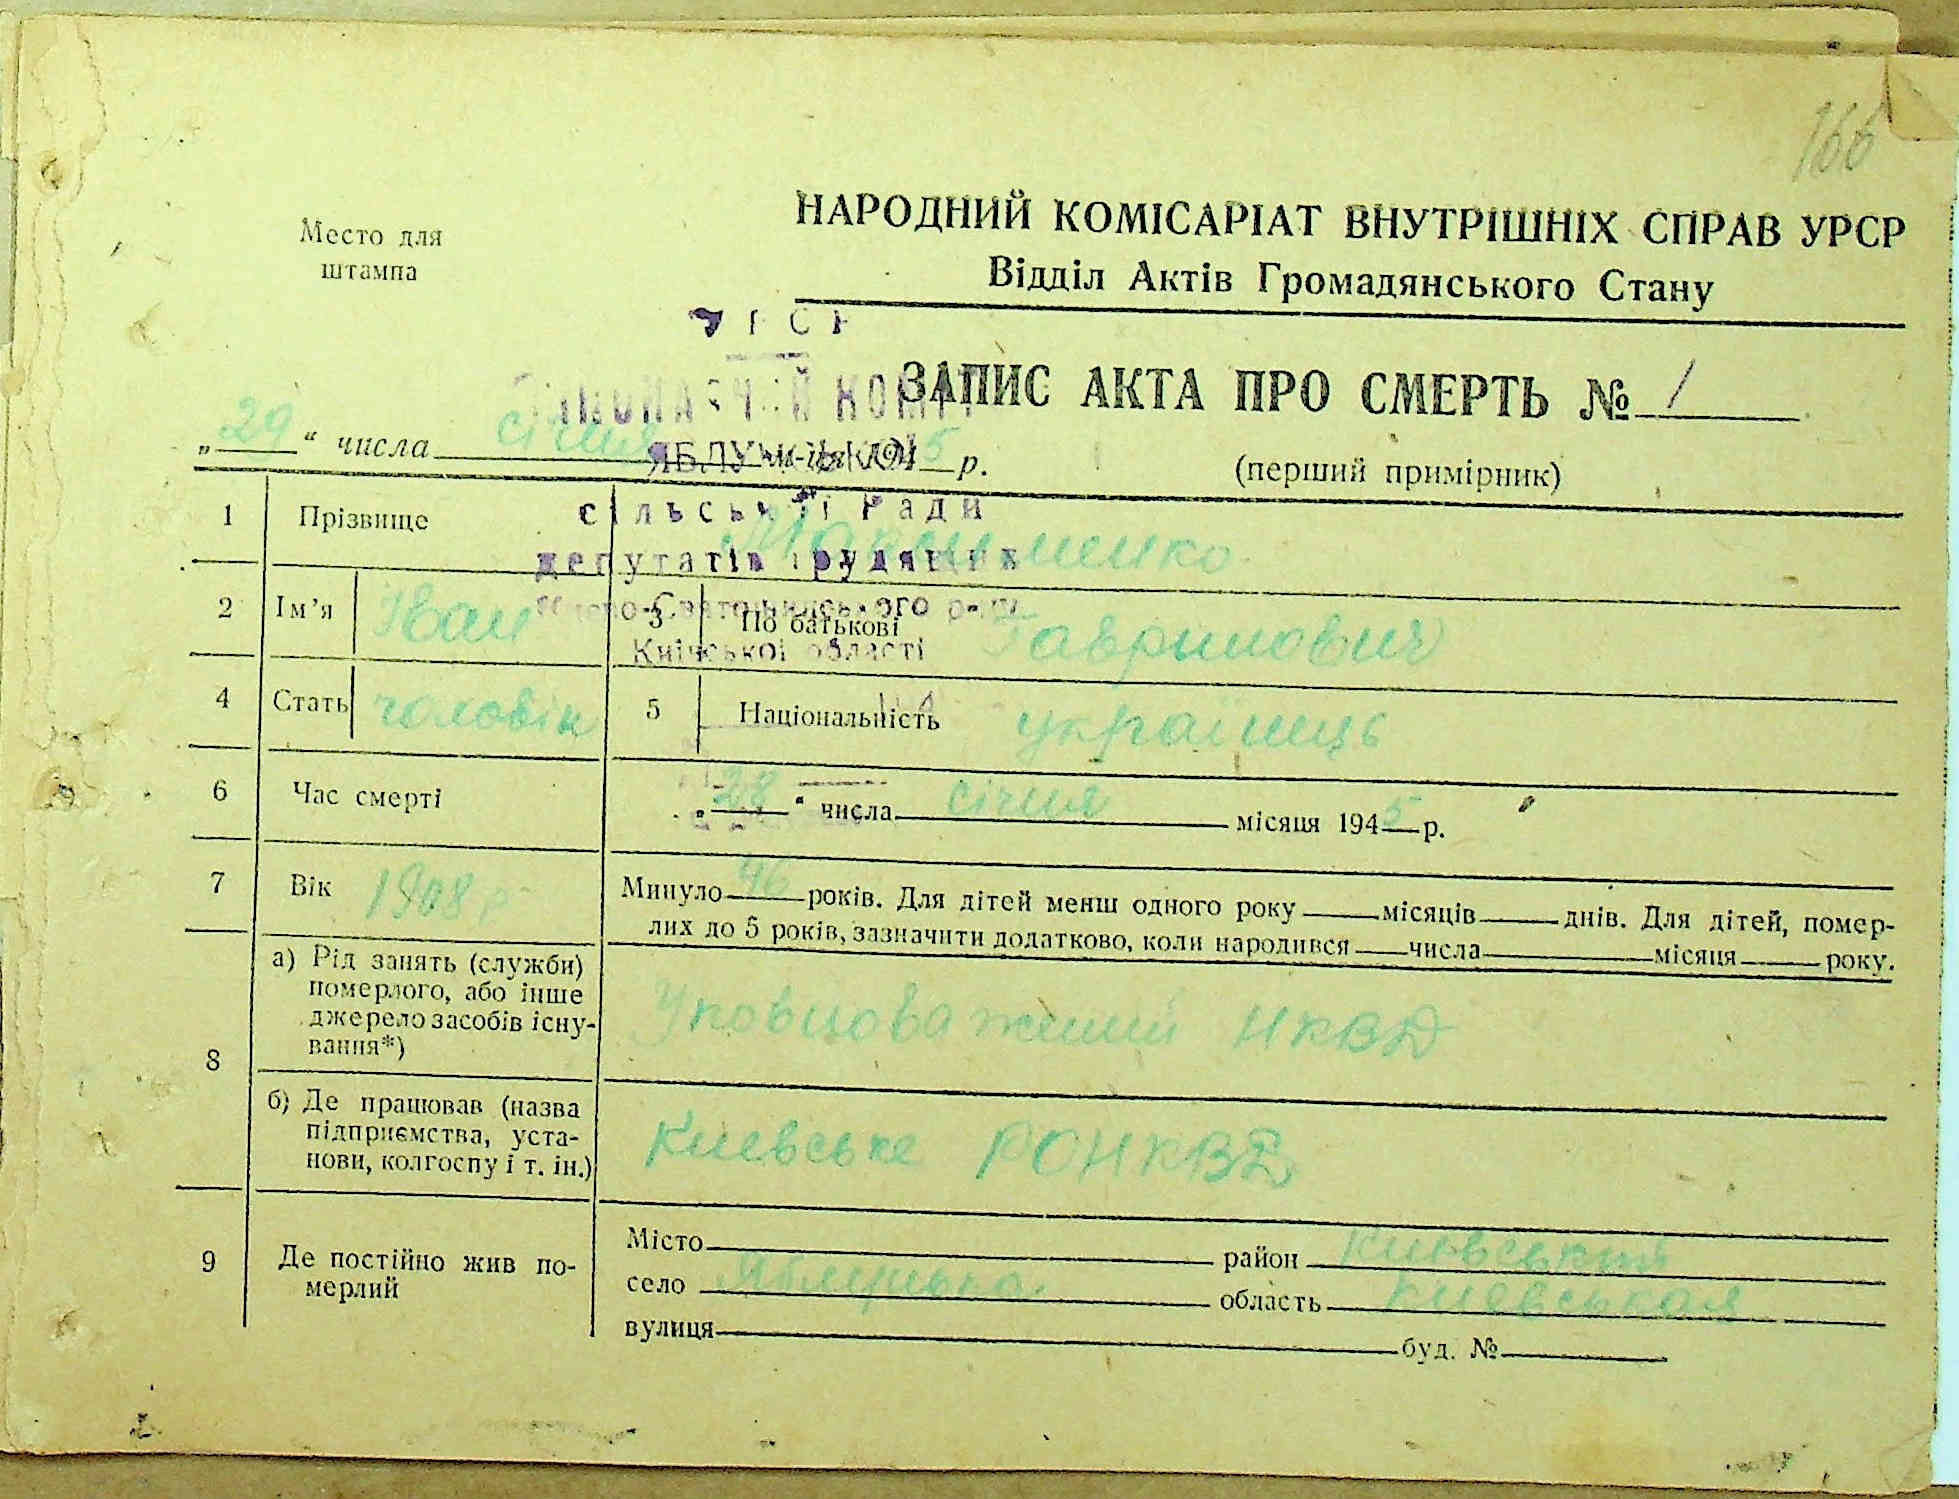 166
Место для
штампа
НАРОДНИЙ КОМІСАРІАТ ВНУТРІШНІХ СПРАВ УРСР
Відділ Актів Громадянського Стану
УРСР
ЗАПИС АКТА ПРО СМЕРТЬ № 1
„29“ числа січня м-ця 1945 р.
(перший примірник)
сільської Ради
депутатів трудящих
Києво-Святошинського р-ну
Київської області
1 Прізвище Максименко
2 Ім’я Іван 3 По батькові Гаврилович
4 Стать чоловік 5 Національність українець
6 Час смерті „28“ числа січня місяця 1945 р.
7 Вік 1908 р Минуло 46 років. Для дітей менш одного року місяців днів. Для дітей, помер-
лих до 5 років, зазначити додатково, коли народився числа місяця року.
8 а) Рід занять (служби)
померлого, або інше
джерело засобів існу-
вання*)
НКВД
б) Де працював (назва
підприємства, уста-
нови, колгоспу і т. ін.)
Киевське РОНКВД
9 Де постійно жив по-
мерлий
Місто район Киівський
село Яблунька область Киевськая
вулиця буд. №